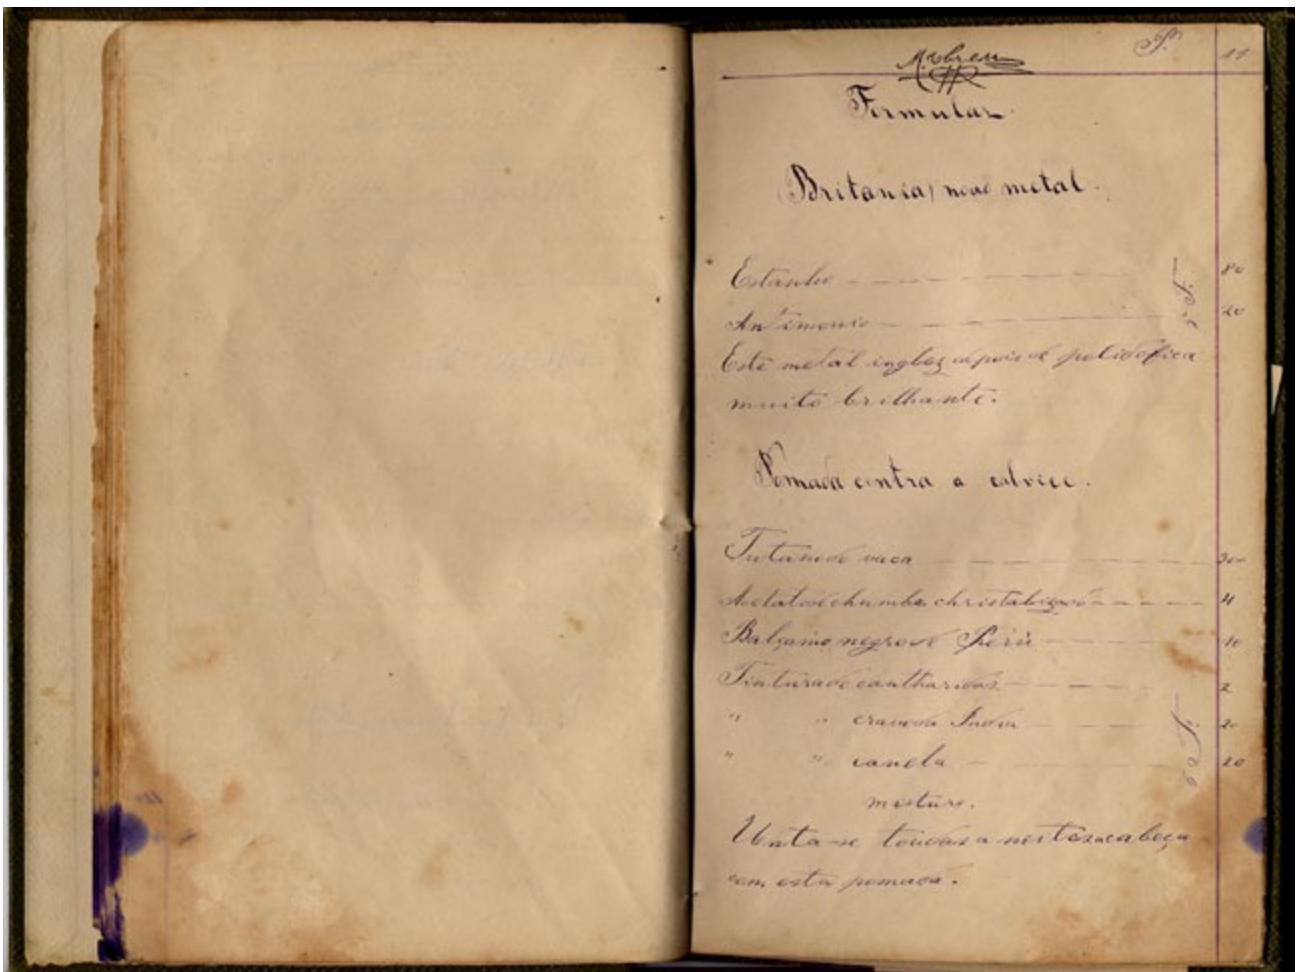 P. 11
M. Abreu
Formulas.
Britania, novo metal.
Estanho 80
Antimonio 20
Este metal inglez depois de polido fica
muito brilhante.
Pomada contra a calvice.
Tutano de vaca 30
Acetato de chumbo christalizado 4
Balçamo negro de Perú 10
Tintura de cantharidas 2
" " cravo da India 20
" " canela 20
misture.
Unta-se toudas a noites a cabeça
com esta pomada.